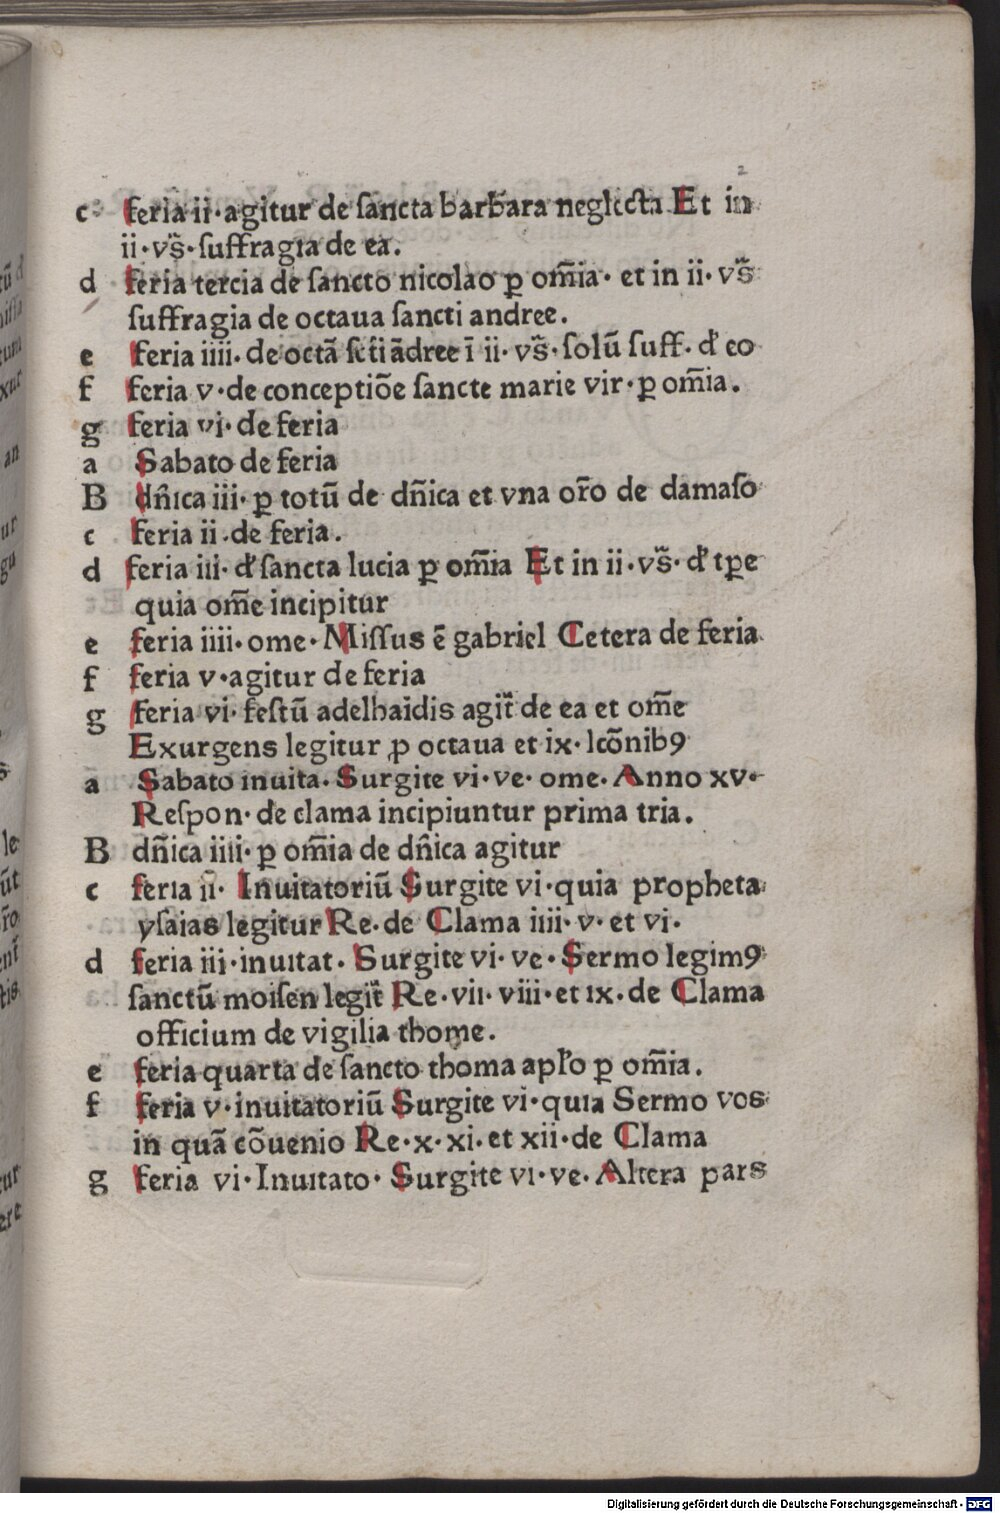 2
c feria ii · agitur de ſancta barb̄ara neglecta Et in
ii · vs̄ · ſuffragia de ea.
d feria tercia de ſancto nicolao ꝑ om̄ia · et in ii · vs̄
ſuffragia de octaua ſancti andree.
e feria iiii. de octā ſcti ādree ī ii · vs̄ · ſolū ſuff. d' eo
f feria v · de conceptiōe ſancte marie vir · ꝑ om̄ia.
g feria vi · de feria
a Sabato de feria
B dn̄ica iii · ꝑ totū de dn̄ica et vna or̄o de damaſo
c feria ii . de feria.
d feria iii · d' ſancta lucia ꝑ om̄ia Et in ii · vs̄ · d' tꝑe
quia om̄e incipitur
e feria iiii. ome · Miſſus ē gabriel Cetera de feria
f feria v · agitur de feria
g feria vi · feſtū adelhaidis agit̄ de ea et om̄e
Exurgens legitur ꝓ octaua et ix · lcōnibꝰ
a Sabato inuita. Surgite vi · ve · ome. Anno xv ·
Reſpon · de clama incipiuntur prima tria.
B dn̄ica iiii · ꝑ om̄ia de dn̄ica agitur
c feria ii · Inuitatoriū Surgite vi · quia propheta
yſaias legitur Re. de Clama iiii · v · et vi ·
d feria iii · inuitat. Surgite vi · ve · Sermo legimꝰ
ſanctū moiſen legit̄ Re · vii · viii · et ix · de Clama
officium de vigilia thome.
e feria quarta de ſancto thoma apl'o ꝑ om̄ia.
f feria v · inuitatoriū Surgite vi · quia Sermo vos
in quā cōuenio Re · x · xi. et xii · de Clama
g feria vi · Inuitato · Surgite vi · ve. Altera pars
Digitalisierung gefördert durch die Deutsche Forschungsgemeinschaft - DFG